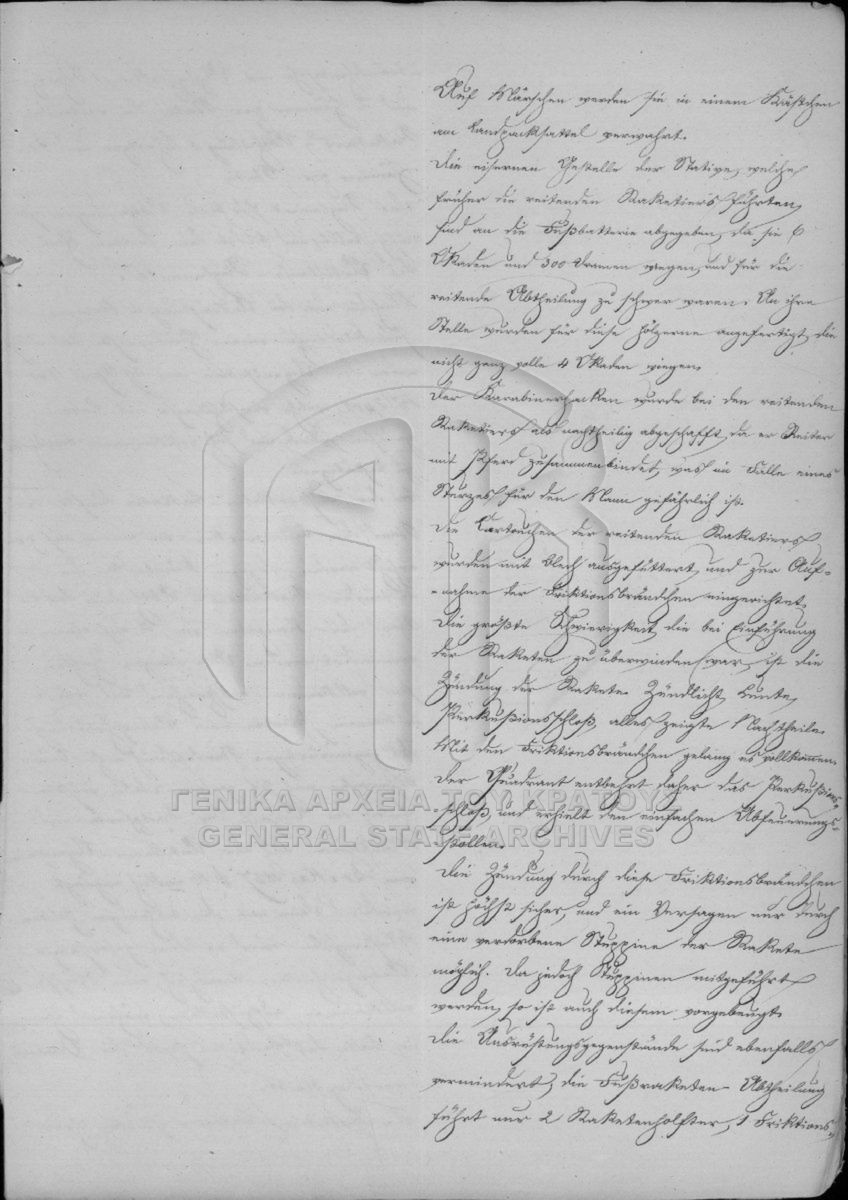 Auf Märschen werden sie in einem Kästchen
am Handpacksattel verwahrt.
Die eisernen Gestelle der Stative, welche
früher die reitenden Raketiers führten,
sind an die Fußbatterie abgegeben, da sie 6
Okaden und 300 Dramen wiegen, und für die
reitende Abtheilung zu schwer waren. An ihre
Stelle wurden für diese hölzerne angefertigt, die
nicht ganz volle 4 Okaden wiegen.
Der Karabinerhacken wurde bei den reitenden
Raketiers als nachtheilig abgeschafft, da er Reiter
mit Pferd zusammenbindet, was im Falle eines
Sturzes für den Mann gefährlich ist.
Die Cartouchen der reitenden Raketiers
wurden mit Blech ausgefüttert, und zur Auf-
-nahme der Friktionsbrändchen eingerichtet.
Die größte Schwierigkeit, die bei Einführung
der Raketen zu überwinden war, ist die
Zündung der Rakete. Zündlicht, Lunte,
Perkußionsschloß, alles zeigte Nachtheile.
Mit den Friktionsbrändchen gelang es vollkommen.
Der Quadrant entbehrt daher das Perkußions-
schloß, und erhielt den einfachen Abfeuerungs-
-stollen.
Die Zündung durch diese Friktionsbrändchen
ist höchst sicher, und ein Versagen nur durch
eine verdorbene Stuppine der Rakete
möglich. Da jedoch Stuppinen mitgeführt
werden, so ist auch diesem vorgebeugt.
Die Ausrüstungsgegenstände sind ebenfalls
vermindert, die Fußraketen-Abtheilung
führt nur 2 Raketenholfter, 1 Friktions-
ΓΕΝΙΚΑ ΑΡΧΕΙΑ ΤΟΥ ΚΡΑΤΟΥΣ
GENERAL STATE ARCHIVES